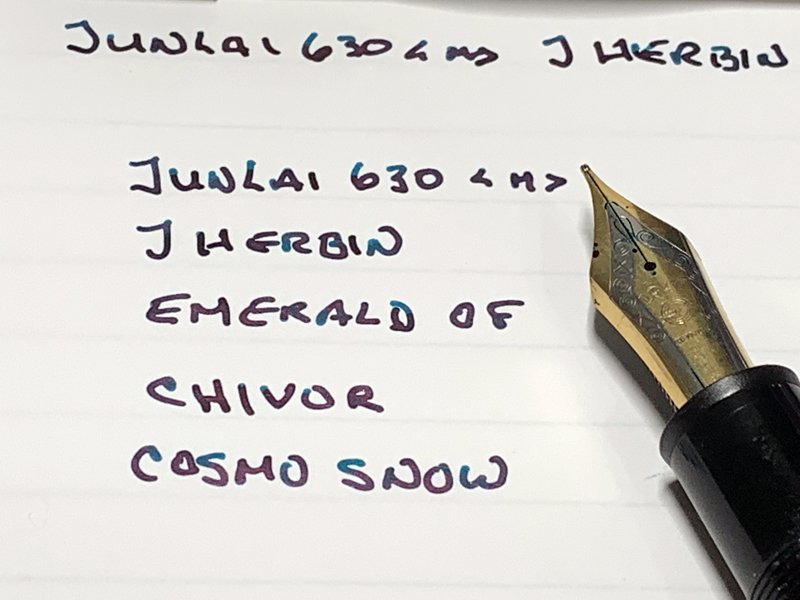 JUNLAI 630 <M> J HERBIN
JUNLAI 630 <M>
J HERBIN
EMERALD OF
CHIVOR
COSMO SNOW